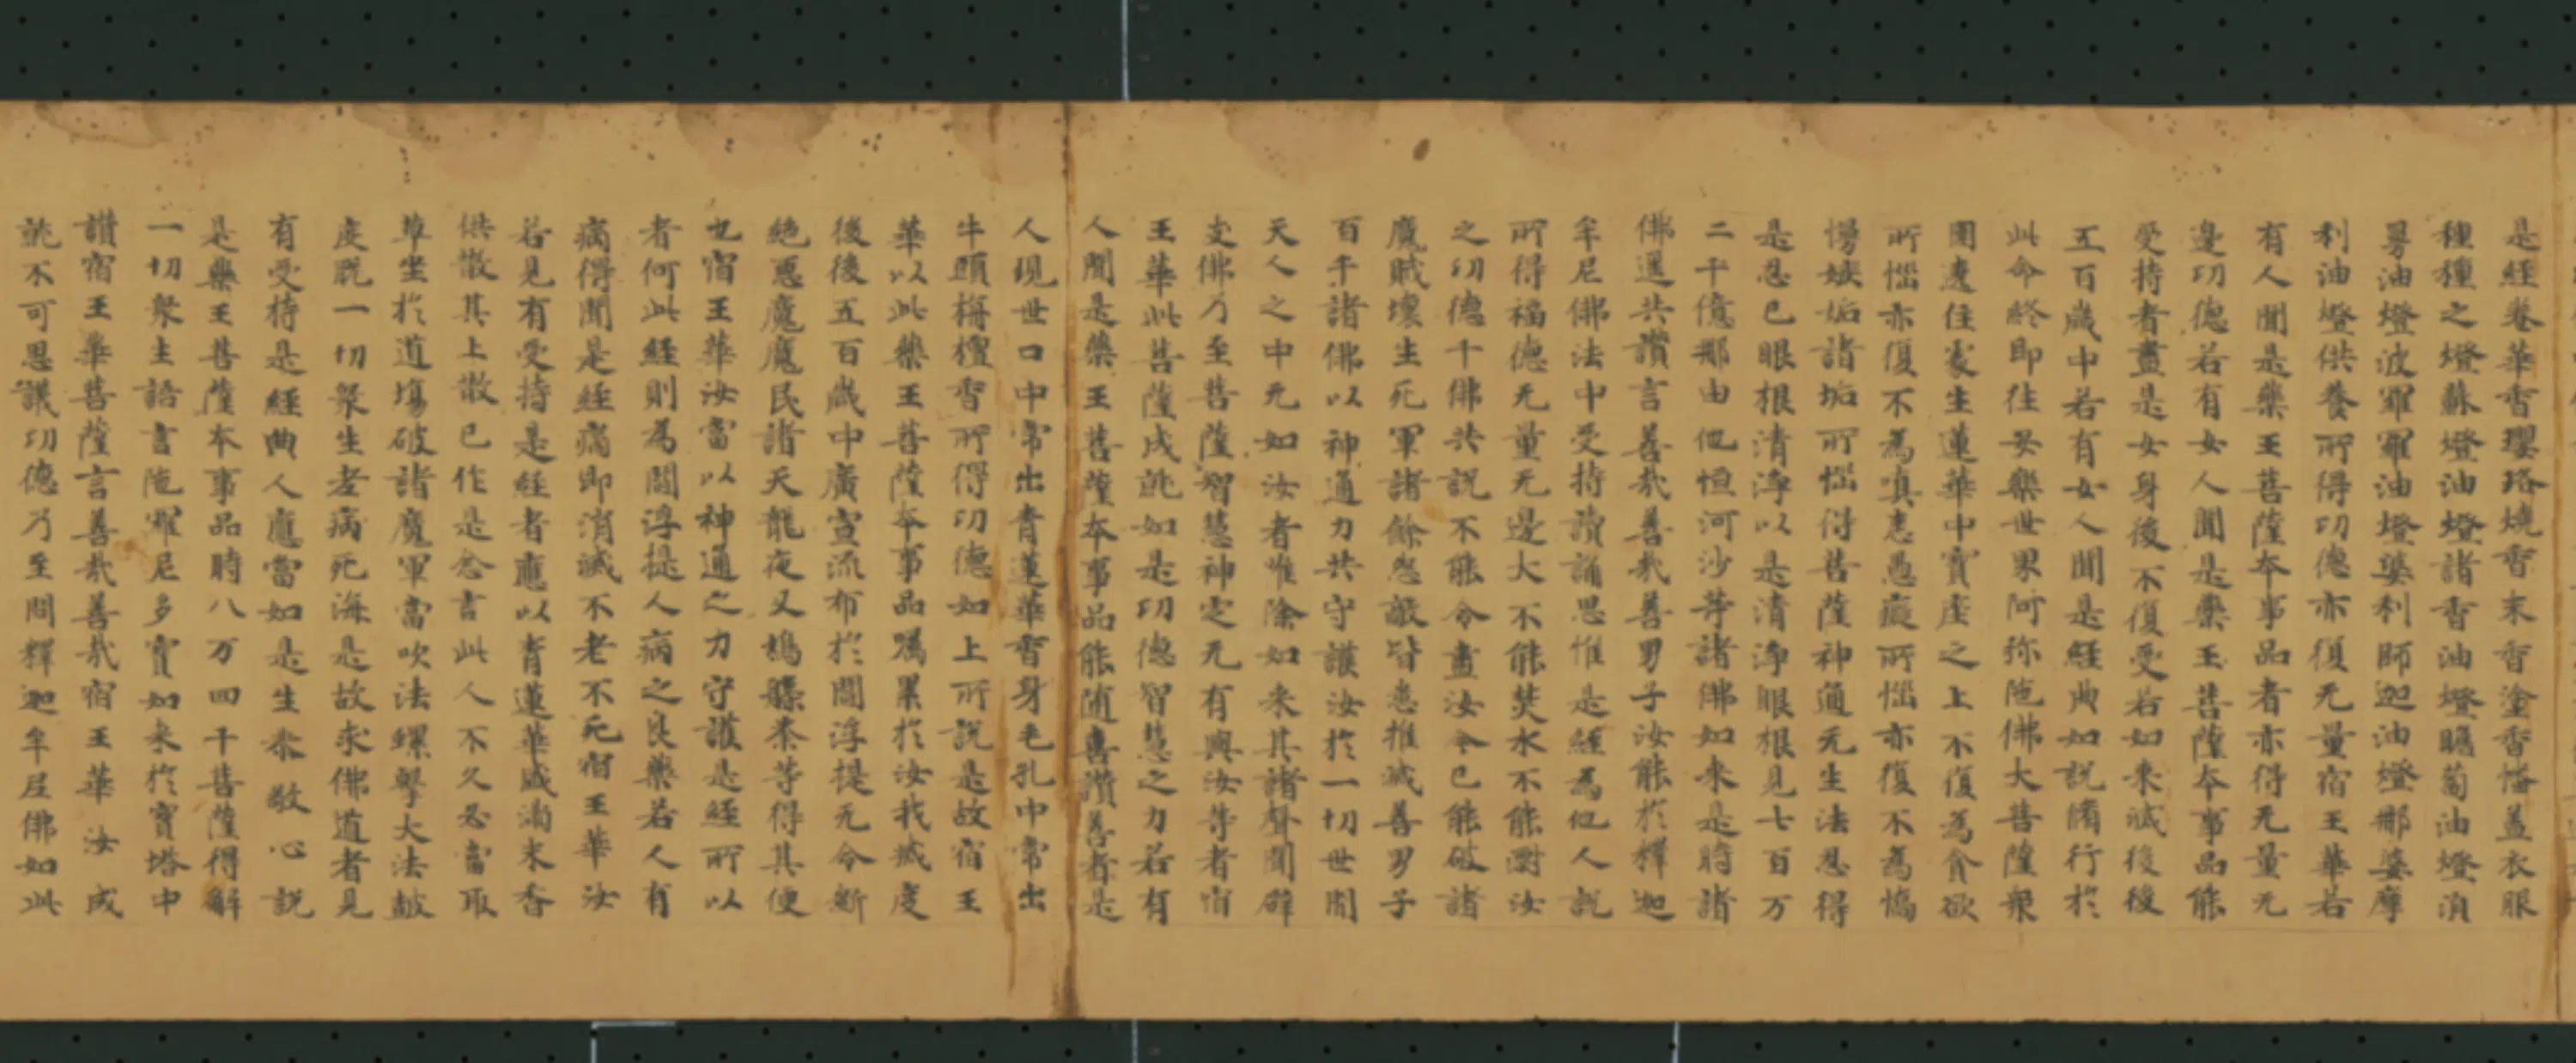 是經卷華香瓔珞燒香末香塗香幡蓋衣服
種種之燈蘇燈油燈諸香油燈瞻蔔油燈湏
曼油燈波羅羅油燈婆利師迦油燈那婆摩
利油燈供養所得功德亦復无量宿王華若
有人聞是藥王菩薩本事品者亦得无量无
邊功德若有女人聞是藥王菩薩本事品能
受持者盡是女身後不復受若如来滅後後
五百歲中若有女人聞是經典如說脩行於
此命終即往安樂世界阿弥陁佛大菩薩衆
圍遶住處生蓮華中寶座之上不復為貪欲
所惱亦復不為嗔恚愚癡所惱亦復不為憍
慢嫉妬諸垢所惱得菩薩神通无生法忍得
是忍已眼根清淨以是清淨眼根見七百万
二千億那由他恒河沙等諸佛如来是時諸
佛遥共讚言善哉善哉善男子汝能於釋迦
牟尼佛法中受持讀誦思惟是經為他人說
所得福德无量无邊火不能焚水不能漂汝
之功德千佛共說不能令盡汝今已能破諸
魔賊壞生死軍諸餘怨敵皆悉摧滅善男子
百千諸佛以神通力共守護汝於一切世間
天人之中无如汝者惟除如来其諸聲聞辟
支佛乃至菩薩智慧禪定无有與汝等者宿
王華此菩薩成就如是功德智慧之力若有
人聞是藥王菩薩本事品能随喜讚善者是
人現世口中常出青蓮華香身毛孔中常出
牛頭栴檀香所得功德如上所說是故宿王
華以此藥王菩薩本事品囑累於汝我滅度
後後五百歲中廣宣流布於閻浮提无令断
絶惡魔魔民諸天龍夜叉鳩槃荼等得其便
也宿王華汝當以神通之力守護是經所以
者何此經則為閻浮提人病之良藥若人有
病得聞是經病即消滅不老不死宿王華汝
若見有受持是經者應以青蓮華盛滿末香
供散其上散已作是念言此人不久必當取
草坐於道塲破諸魔軍當吹法螺擊大法皷
度脫一切衆生老病死海是故求佛道者見
有受持是經典人應當如是生恭敬心說
是藥王菩薩本事品時八万四千菩薩得解
一切衆生語言陁羅尼多寶如来於寶塔中
讚宿王華菩薩言善哉善哉宿王華汝成
就不可思議功德乃至問釋迦牟尼佛如此